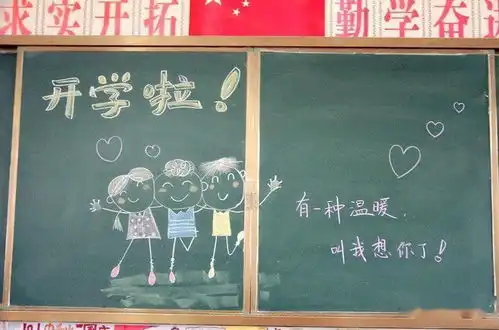 求实开拓
勤学奋
开学啦！
有一种温暖，
叫我想你了！